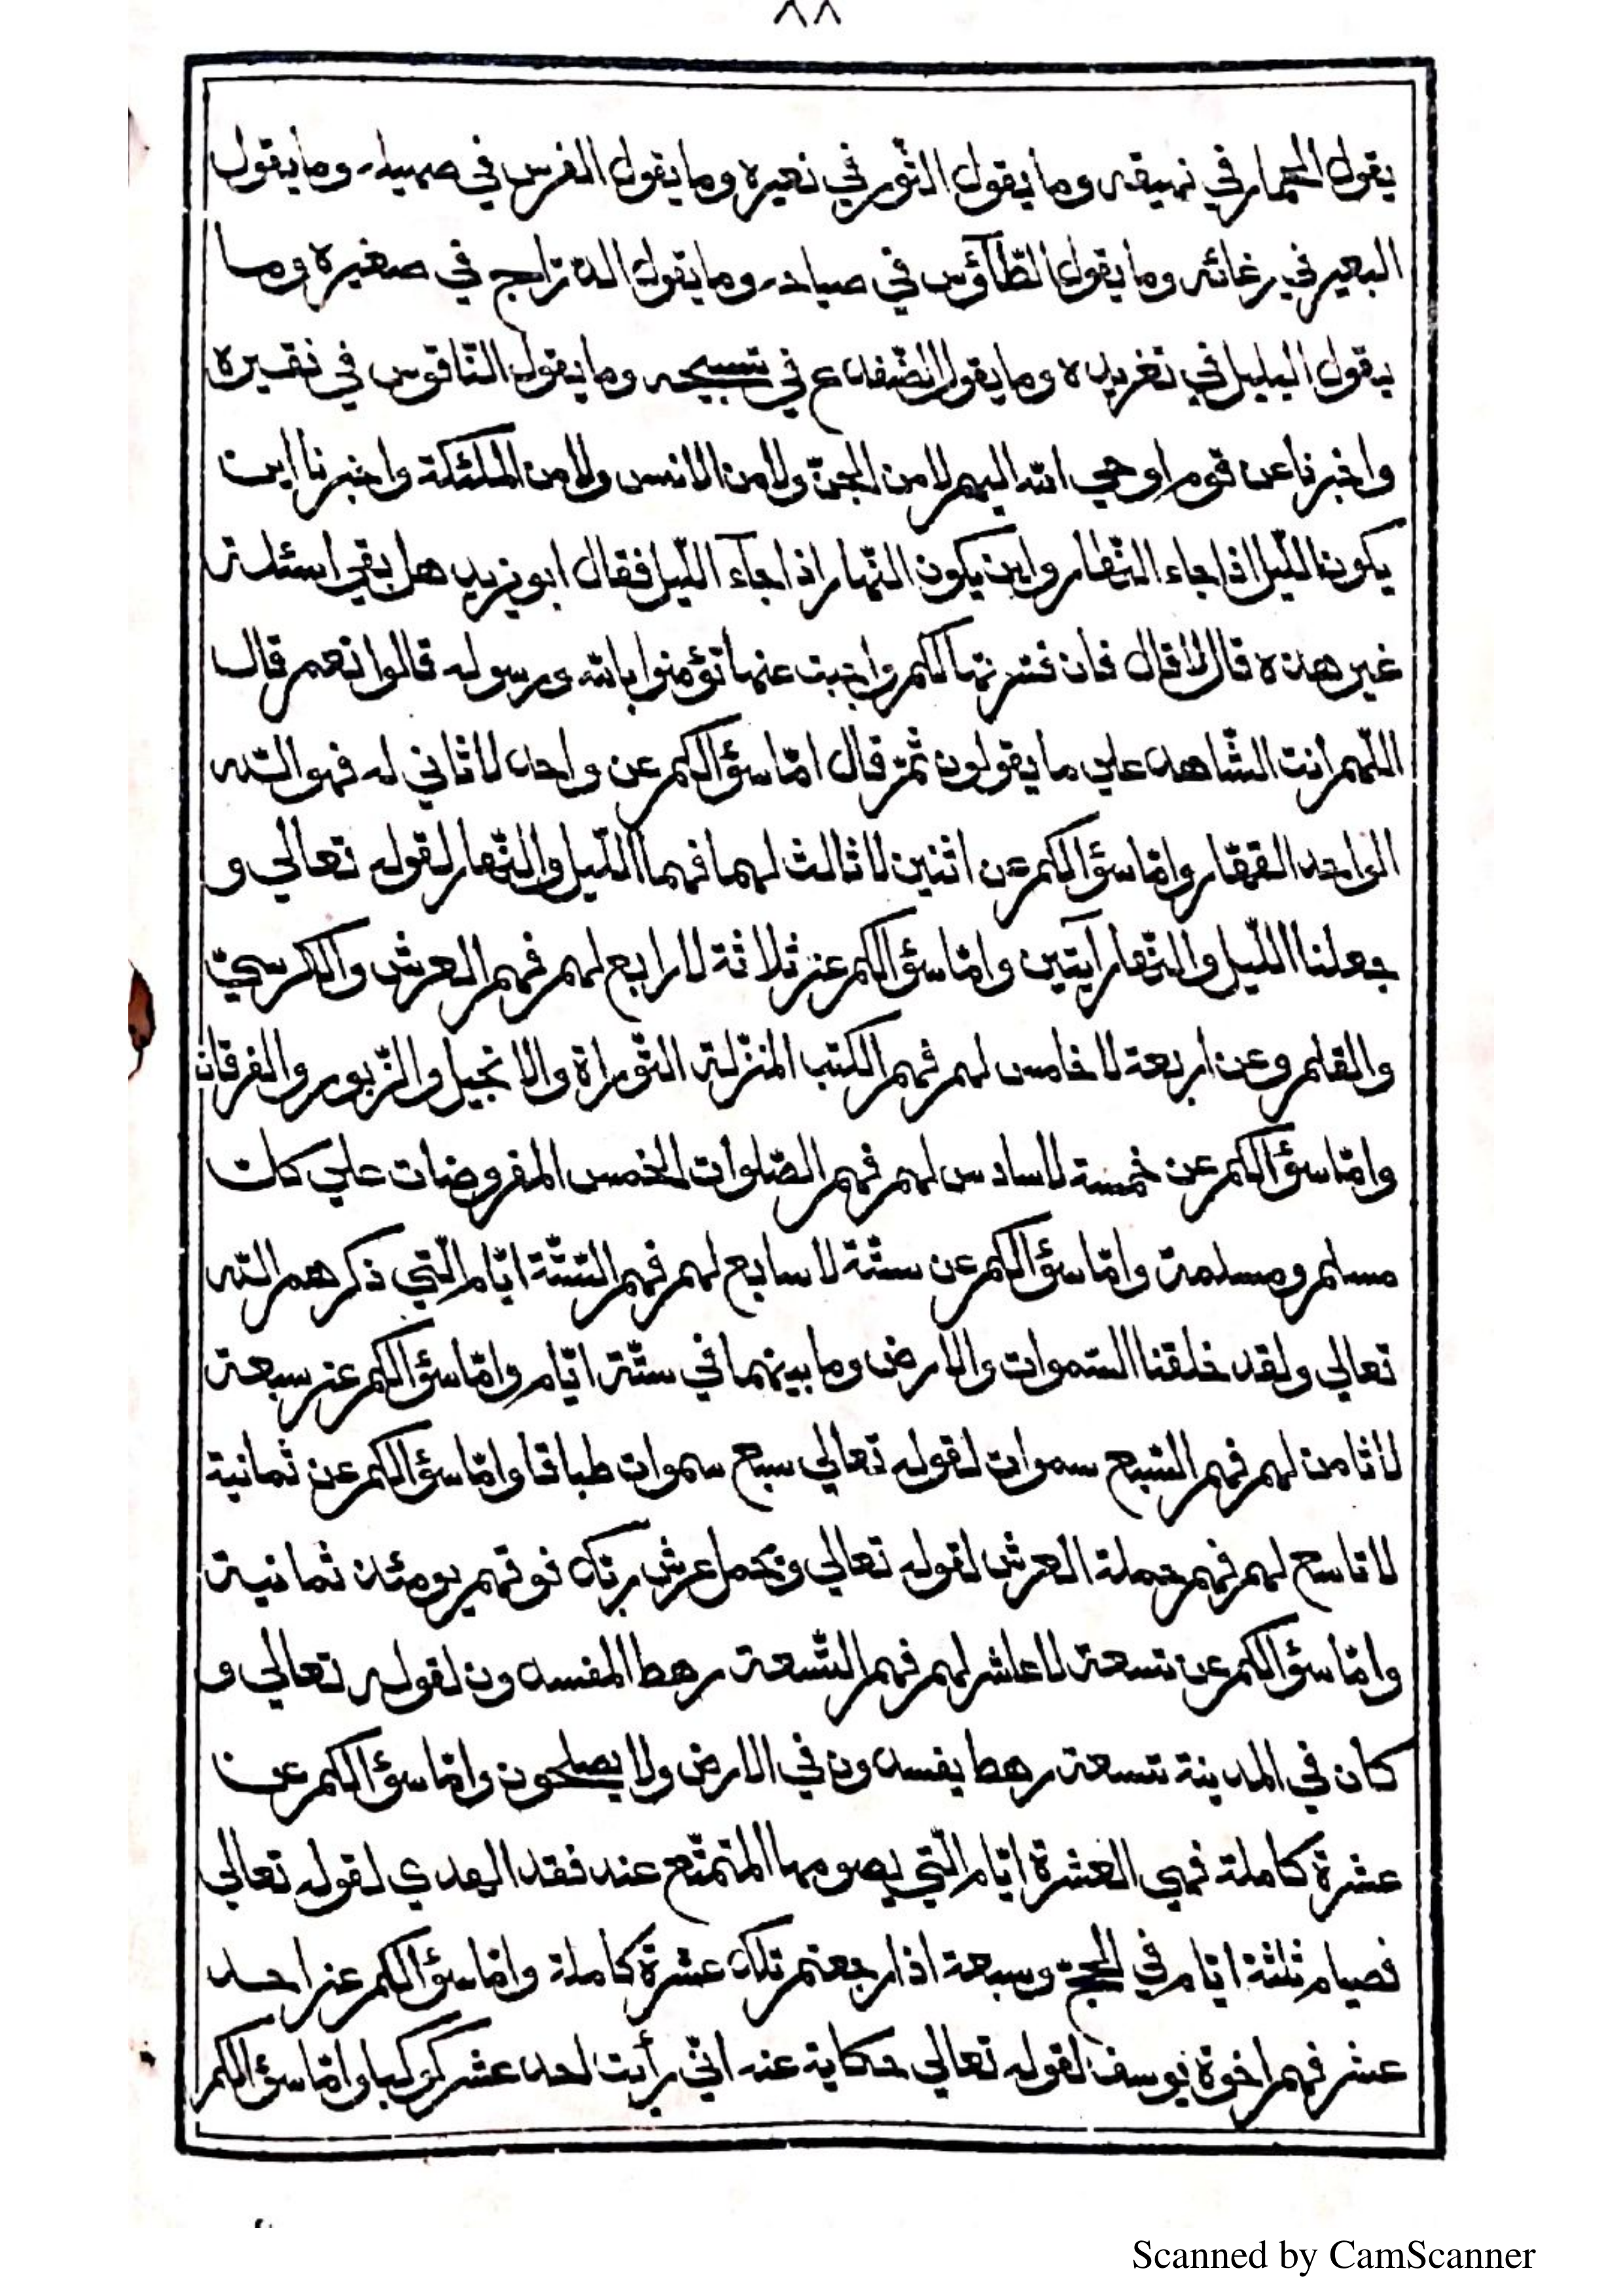 ٨٨
يقول الحمار في نهيقه وما يقول الثور في نعيره وما يقول الفرس في صهيله وما يقول
البعير في رغائه وما يقول الطّآؤس في صياحه وما يقول الدّرّاج في صغيره وما
يقول البلبل في تغريده وما يقول الضّفدع في تسبيحه وما يقول النّاقوس في نقيره
واخبرنا عن قوم اوحي الله اليهم لا من الجنّ ولا من الانس ولا من الملئكة واخبرنا اين
يكون اللّيل اذا جاء النّهار واين يكون النّهار اذا جآء اللّيل فقال ابو يزيد هل بقي اسئلة
غير هذه قال لا قال فان فسّرتها لكم واجبت عنها تؤمنوا بالله ورسوله قالوا نعم قال
اللّهم انت الشّاهد علي ما يقولون ثمّ قال امّا سؤالكم عن واحد لا ثاني له فهو اللّه
الواحد القهّار وامّا سؤالكم عن اثنين لا ثالث لهما فهما اللّيل والنّهار لقوله تعالي و
جعلنا اللّيل والنّهار آيتين وامّا سؤالكم عن ثلاثة لا رابع لهم فهم العرش والكرسيّ
والقلم وعن اربعة لا خامس لهم فهم الكتب المنزّلة التّوراة والانجيل والزّبور والفرقان
وامّا سؤالكم عن خمسة لا سادس لهم فهم الصّلوات الخمس المفروضات علي كلّ
مسلم ومسلمة وامّا سؤالكم عن ستّة لا سابع لهم فهم السّتّة ايّام الّتي ذكرهم اللّه
تعالي ولقد خلقنا السّموات والارض وما بينهما في ستّة ايّام وامّا سؤالكم عن سبعة
لا ثامن لهم فهم السّبع سموات لقوله تعالي سبع سموات طباقا وامّا سؤالكم عن ثمانية
لا تاسع لهم فهم حملة العرش لقوله تعالي ويحمل عرش ربّك فوقهم يومئذ ثمانية
وامّا سؤالكم عن تسعة لا عاشر لهم فهم التّسعة رهط المفسدون لقوله تعالي و
كان في المدينة تسعة رهط يفسدون في الارض ولا يصلحون وامّا سؤالكم عن
عشرة كاملة فهي العشرة ايّام الّتي يصومها المتمتّع عند فقد الهدي لقوله تعالي
فصيام ثلثة ايّام في الحجّ وسبعة اذا رجعتم تلك عشرة كاملة وامّا سؤالكم عن احد
عشر فهم اخوة يوسف لقوله تعالي حكاية عنه انّي رأيت احد عشر كوكبا وامّا سؤالكم
Scanned by CamScanner